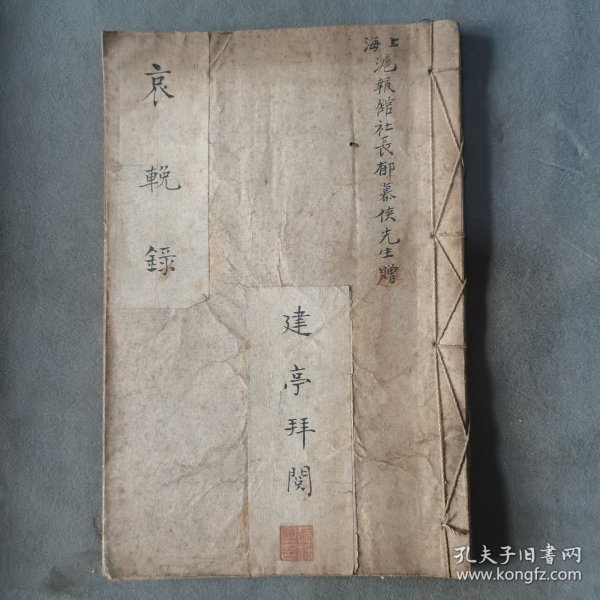 上海滬報館社長郁慕俠先生贈
建亭拜閱
哀輓錄
孔夫子旧书网
www.kongfz.com